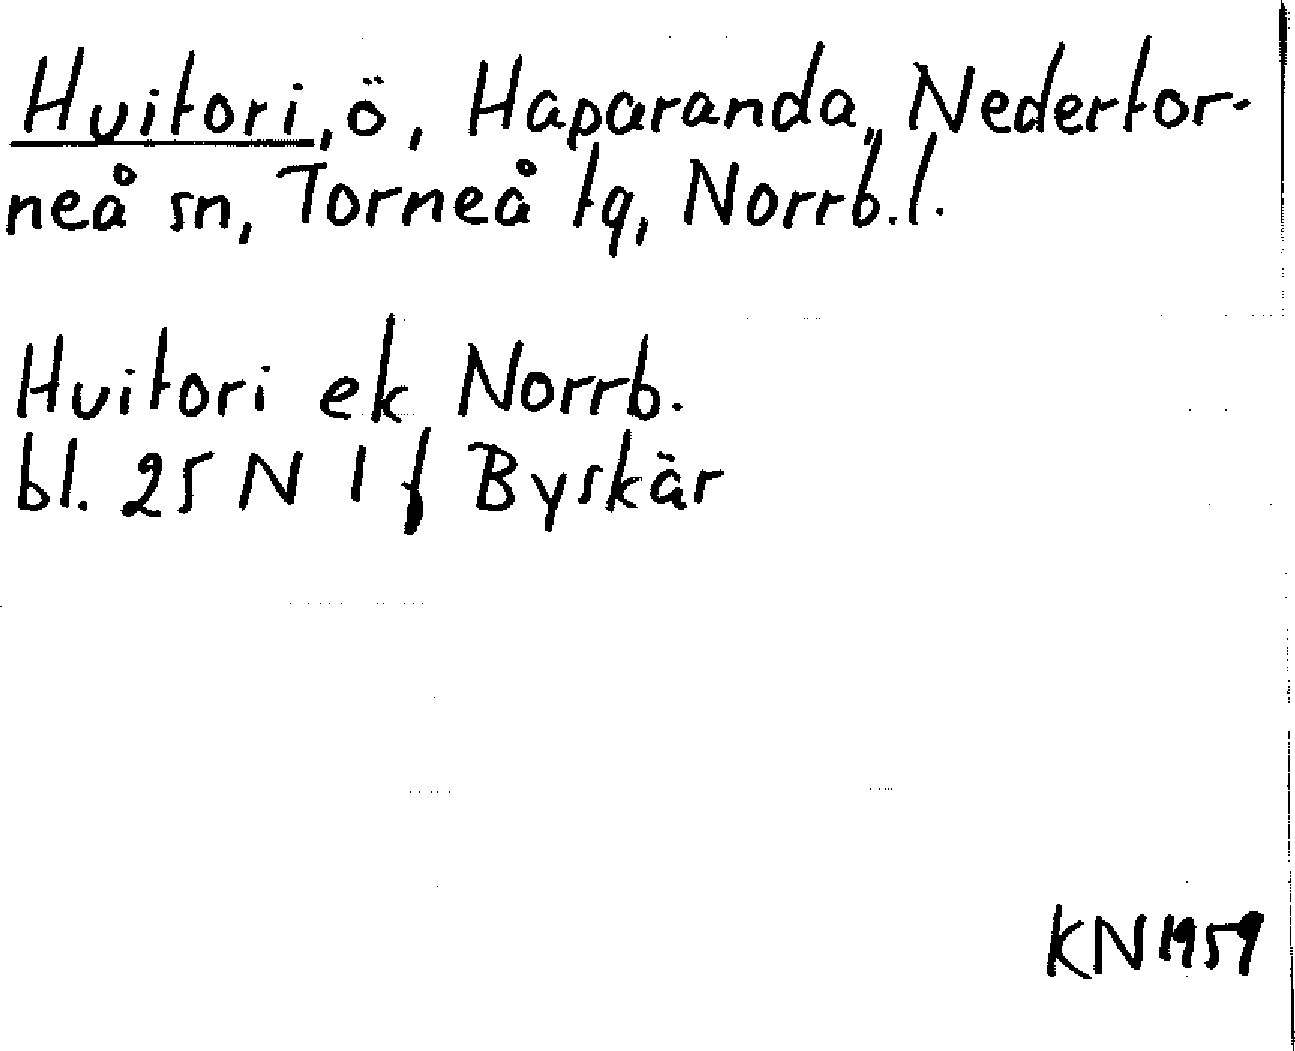 Huitori, ö, Haparanda, Nedertor-
neå sn, Torneå tg, Norrb.l.
Huitori ek Norrb.
bl. 25 N 1 f Byskär
KN 1959